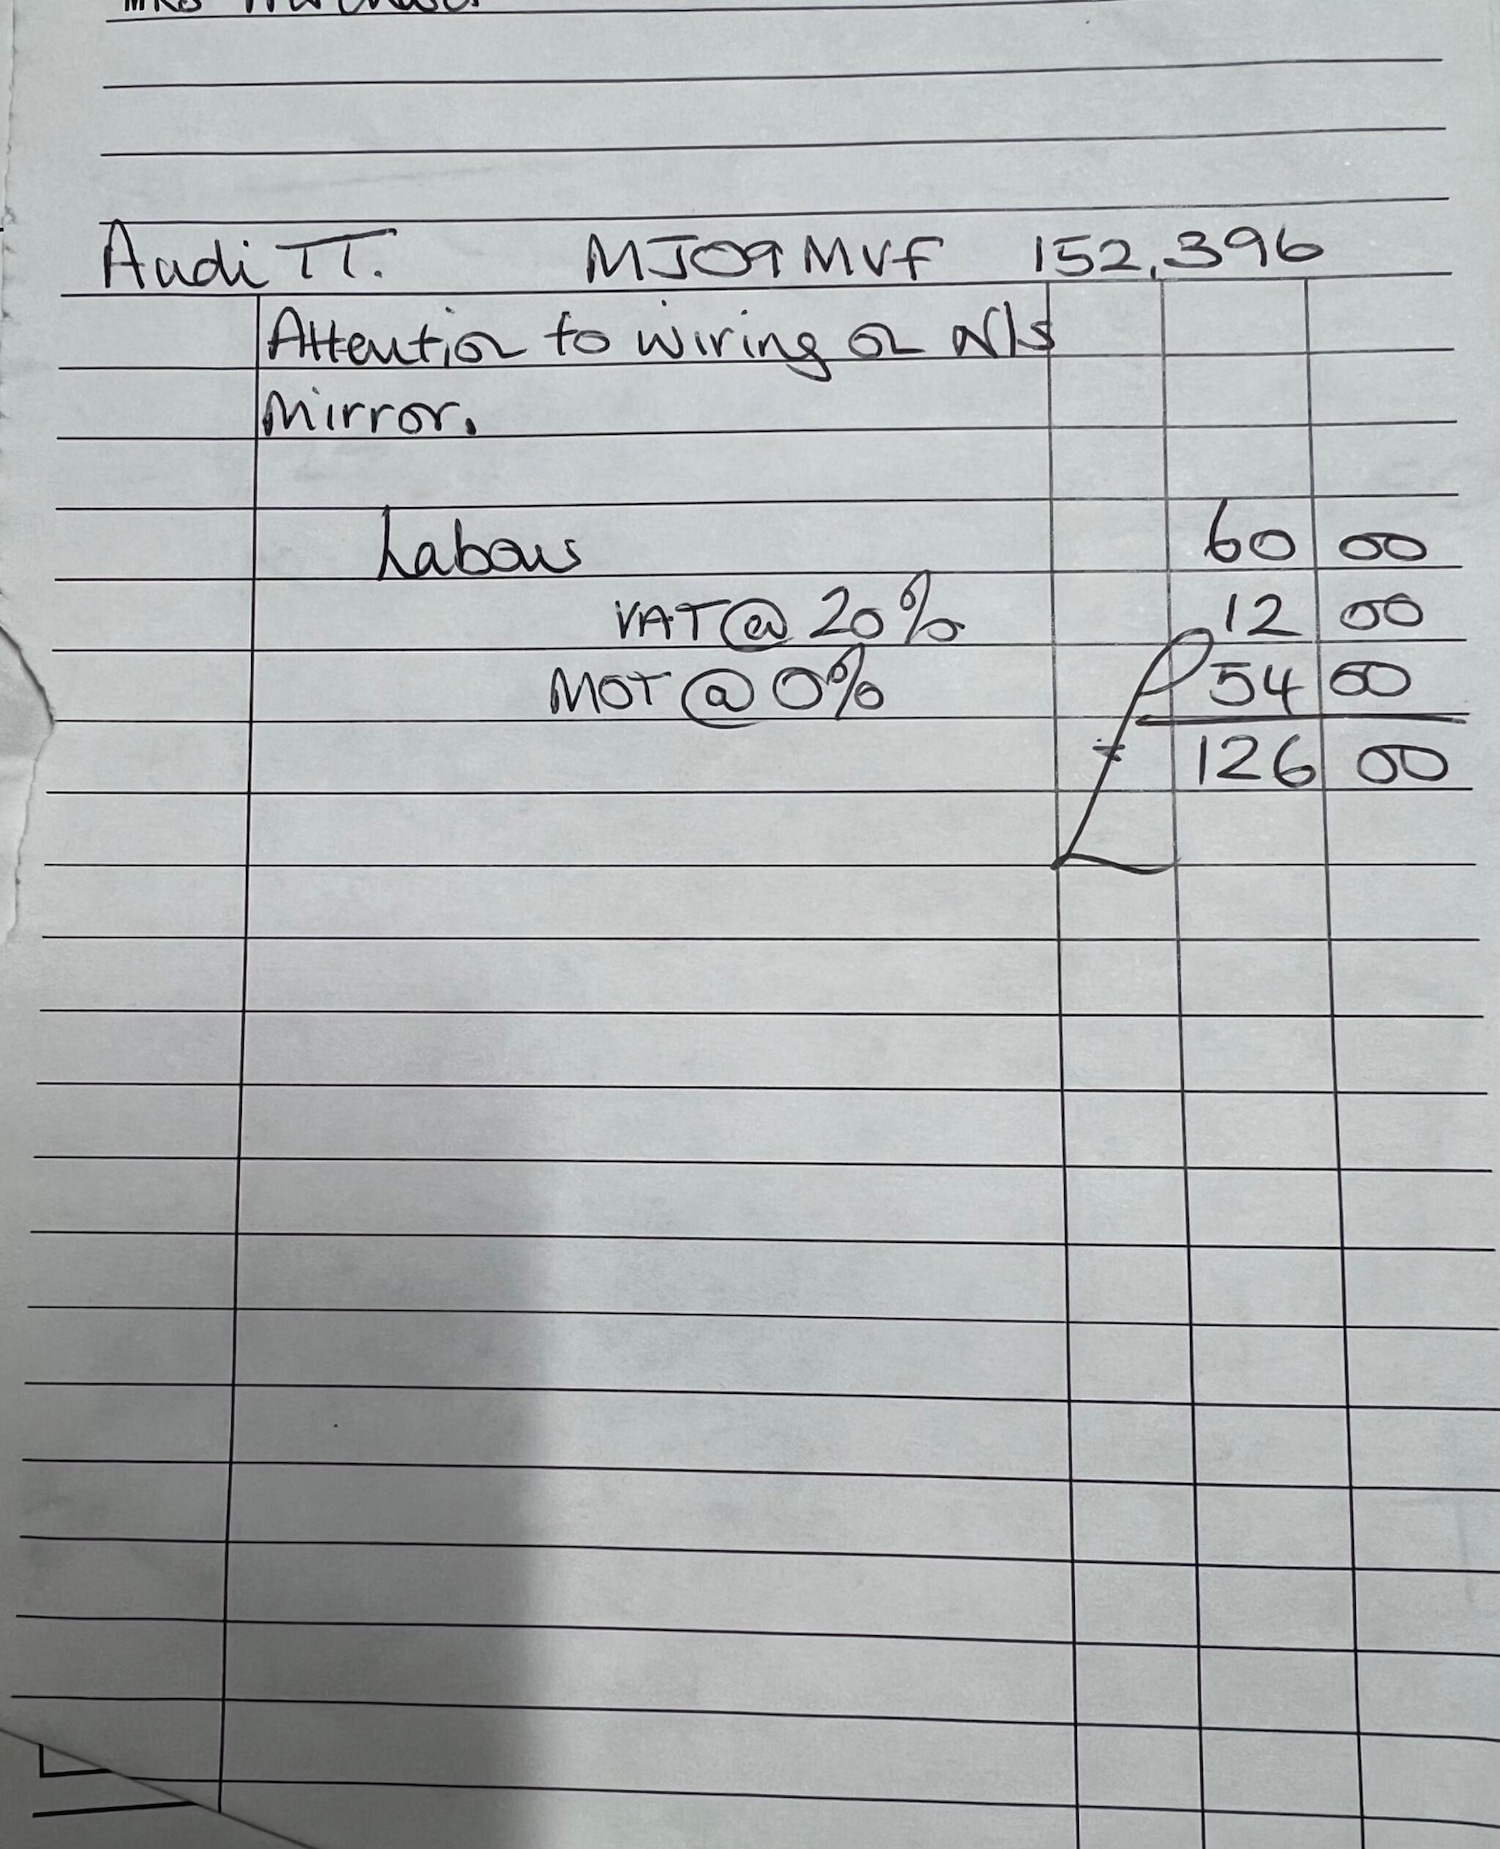 Audi TT. MJ09 MVF 152,396
Attention to wiring on N/S
Mirror.
Labour 60 00
VAT @ 20% 12 00
MOT @ 0% 54 00
£ 126 00